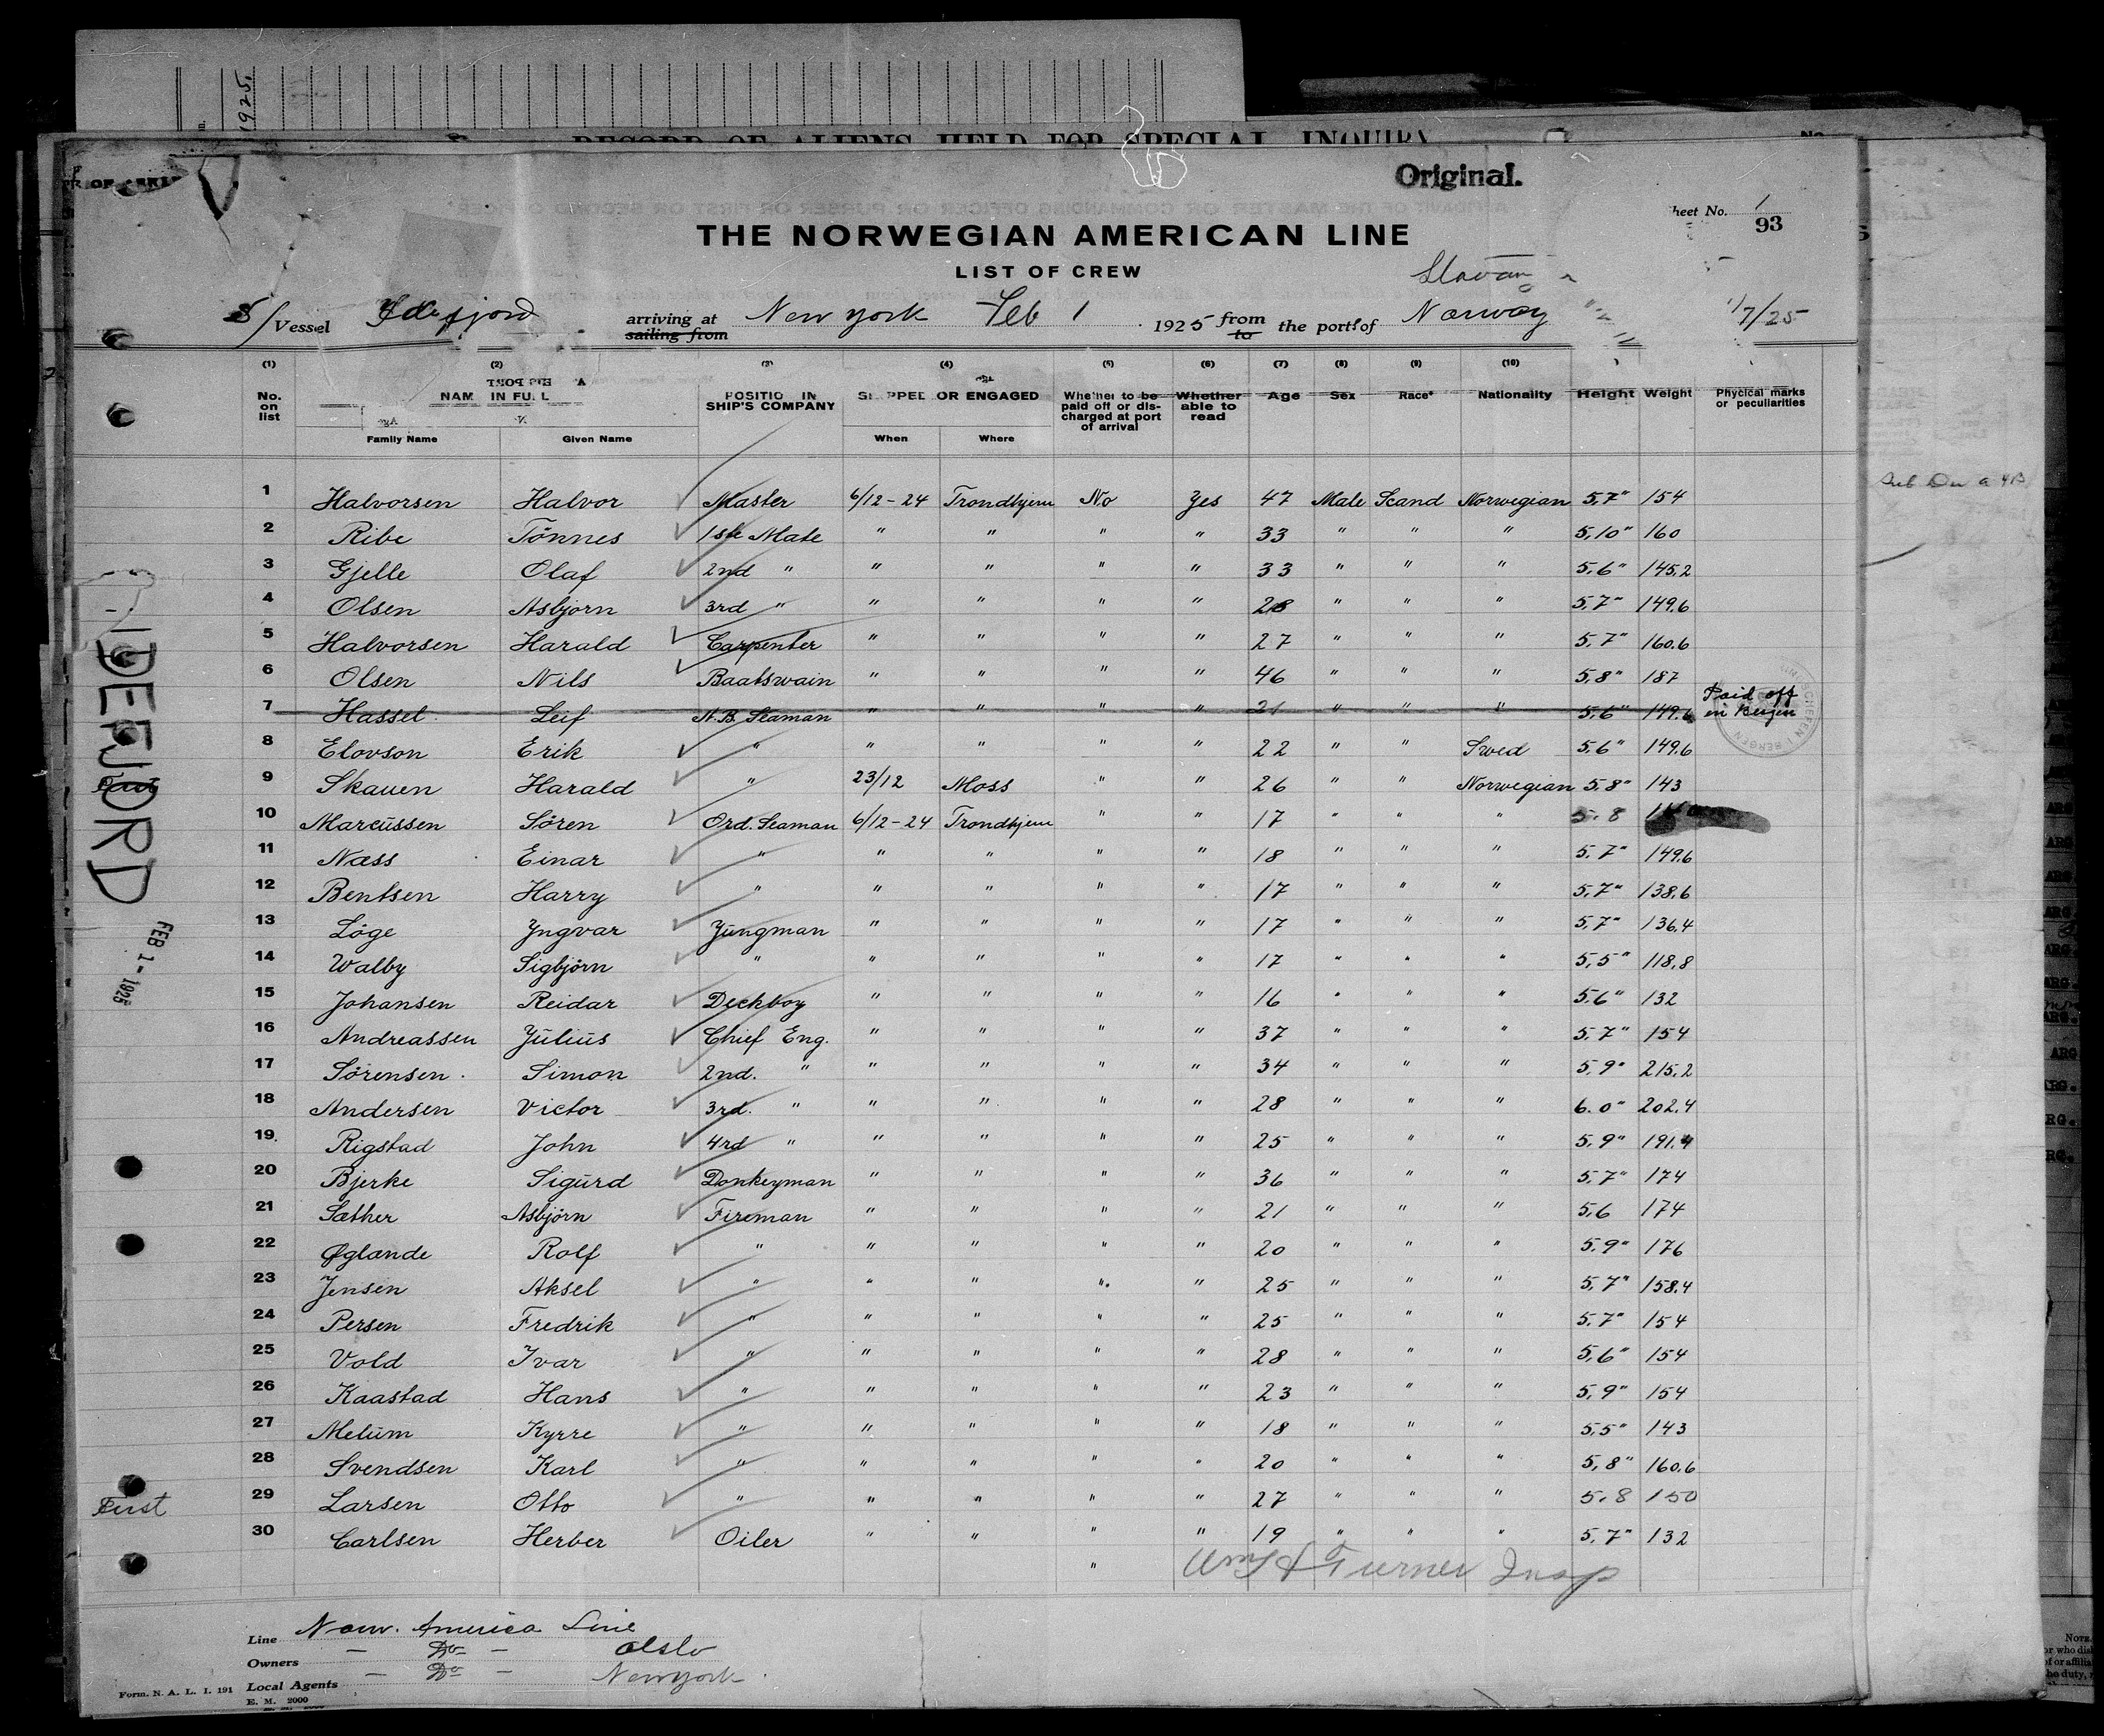 1925.
RECORD OF ALIENS HELD FOR SPECIAL INQUIRY
No.
Original.
heet No. 1
93
THE NORWEGIAN AMERICAN LINE
LIST OF CREW
S/Vessel Idefjord arriving at sailing from New York Feb 1 1925 from to the ports of Norway 1/7/25
(1) (2) (3) (4) (5) (6) (7) (8) (9) (10)
No. on list NAM IN FULL POSITIO IN SHIP'S COMPANY SHIPPED OR ENGAGED Whether to be paid off or discharged at port of arrival Whether able to read Age Sex Race* Nationality Height Weight Physical marks or peculiarities
Family Name Given Name When Where
1 Halvorsen Halvor Master 6/12-24 Trondhjem No Yes 47 Male Scand Norwegian 5,7" 154
2 Ribe Tönnes 1ste Mate " " " " 33 " " " 5,10" 160
3 Gjelle Olaf 2nd " " " " " 33 " " " 5.6" 145.2
4 Olsen Asbjorn 3rd " " " " " 28 " " " 5.7" 149.6
5 Halvorsen Harald Carpenter " " " " 27 " " " 5.7" 160.6
6 Olsen Nils Baatswain " " " " 46 " " " 5,8" 187
7 Hassel Leif A.B. Seaman " " " " 21 " " " 5.6" 149.6 Paid off in Bergen
8 Elovson Erik " " " " " 22 " " Swed 5.6" 149.6
9 Skauen Harald " 23/12 Moss " " 26 " " Norwegian 5.8" 143
10 Marcussen Sören Ord. Seaman 6/12-24 Trondhjem " " 17 " " " 5.8
11 Næss Einar " " " " " 18 " " " 5.7" 149.6
12 Bentsen Harry " " " " " 17 " " " 5.7" 138.6
13 Löge Yngvar Jungman " " " " 17 " " " 5,7" 136.4
14 Walby Sigbjörn " " " " " 17 " " " 5,5" 118.8
15 Johansen Reidar Deckboy " " " " 16 " " " 5.6" 132
16 Andreassen Julius Chief Eng. " " " " 37 " " " 5.7" 154
17 Sörensen Simon 2nd. " " " " " 34 " " " 5.9" 215.2
18 Andersen Victor 3rd. " " " " " 28 " " " 6.0" 202.4
19. Rigstad John 4rd " " " " " 25 " " " 5.9" 191.4
20 Bjerke Sigurd Donkeyman " " " " 36 " " " 5.7" 174
21 Sæther Asbjörn Fireman " " " " 21 " " " 5.6 174
22 Øglænde Rolf " " " " " 20 " " " 5.9" 176
23 Jensen Aksel " " " " " 25 " " " 5,7" 158.4
24 Persen Fredrik " " " " " 25 " " " 5.7" 154
25 Vold Ivar " " " " " 28 " " " 5,6" 154
26 Kaastad Hans " " " " " 23 " " " 5,9" 154
27 Melum Kyrre " " " " " 18 " " " 5,5" 143
28 Svendsen Karl " " " " " 20 " " " 5,8" 160.6
29 Larsen Otto " " " " " 27 " " " 5.8 150
30 Carlsen Herber Oiler " " " " 19 " " " 5.7" 132
"
Wm H Turner Insp
IDEFJORD
FEB 1-1925
First
Line Norw. America Line
Owners - Do - Oslo
Local Agents - Do - New York
Form. N. A. L. I. 191
E. M. 2000